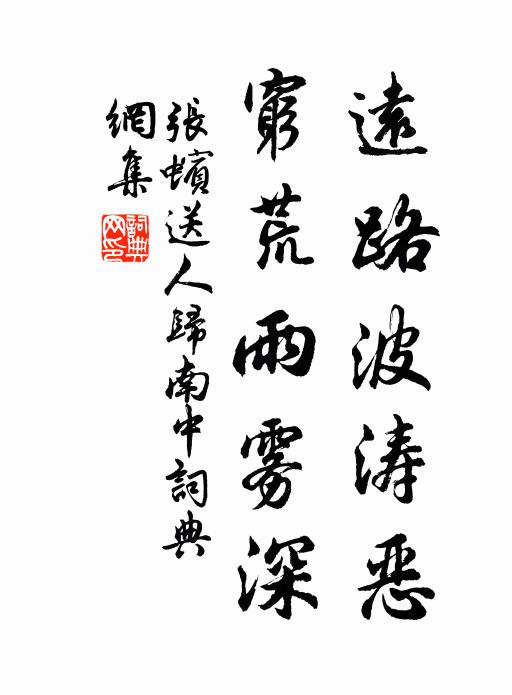 遠路波涛恶
窮荒雨雾深
張蠙送人歸南中詞典
網集
詞典
网印